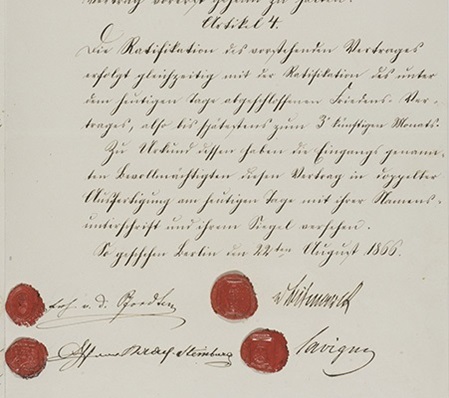 Vertrag vorerst geheim zu halten.
Artikel 4.
Die Ratifikation des vorstehenden Vertrages
erfolgt gleichzeitig mit der Ratifikation des unter
dem heutigen Tage abgeschlossenen Friedens-Ver-
trages, also bis spätestens zum 3t künftigen Monats.
Zu Urkund dessen haben die Eingangs genann-
ten Bevollmächtigten diesen Vertrag in doppelter
Ausfertigung am heutigen Tage mit ihrer Namens-
unterschrift und ihrem Siegel versehen.
So geschehen Berlin den 22ten August 1866.
v. d. Pfordten
vBismarck
Bray-Steinburg
Savigny